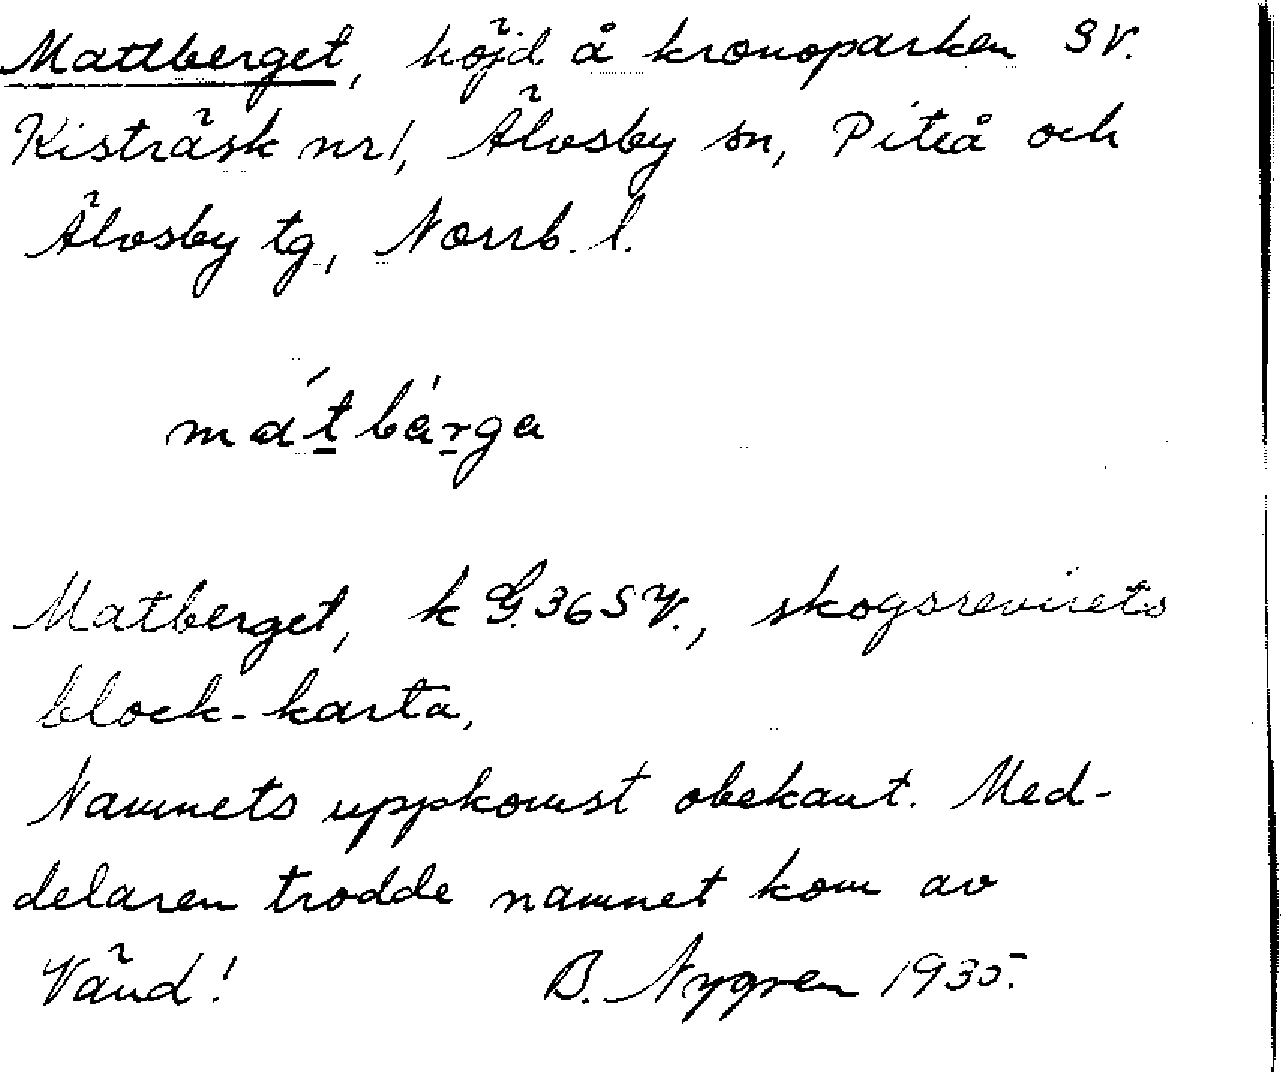 Mattberget, höjd å kronoparken SV.
Kisträsk nr 1, Älvsby sn, Piteå och
Älvsby tg, Norrb. l.
mátbárga
Matberget, k G. 36 SV., skogsrevirets
block-karta,
Namnets uppkomst obekant. Med-
delaren trodde namnet kom av
Vänd! B. Nygren 1935.